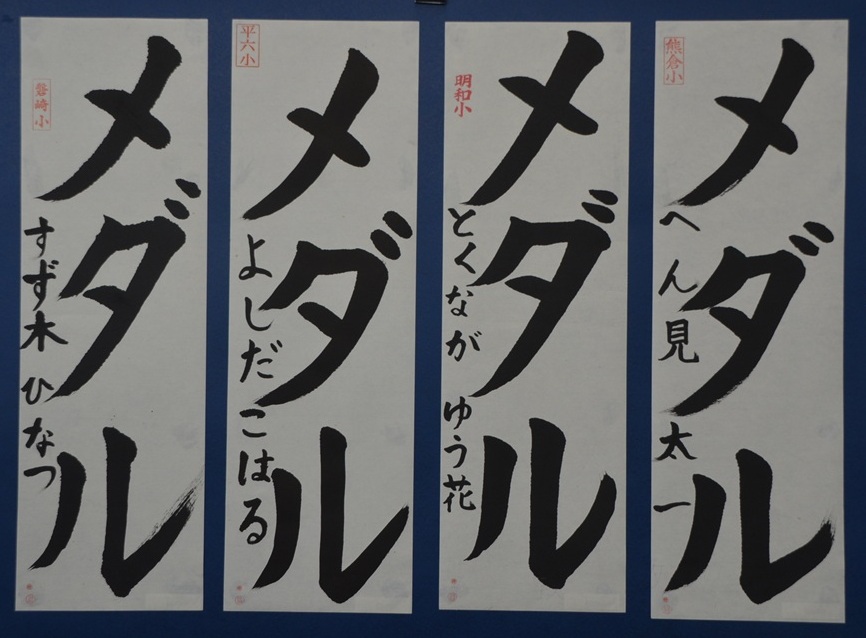 熊倉小
メダル
へん見 太一
明和小
メダル
とくなが ゆう花
平六小
メダル
よしだ こはる
磐崎小
メダル
すず木 ひなつ